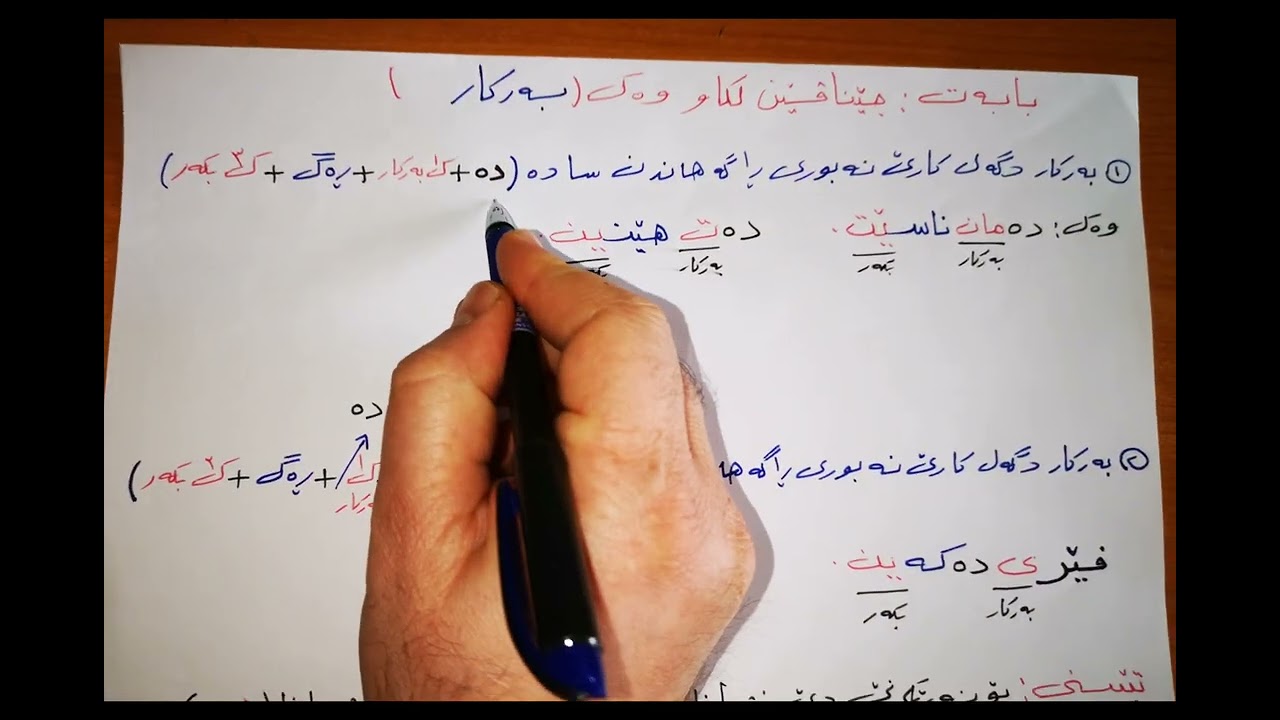 بابەت: جێناڤێن لکاو وەک (بەرکار)
① بەرکار دگەل کارێ نەبوری ڕاگەهاندن سادە (دە + ک١ بەرکار + ڕەگ + ک٣ بکەر)
وەک: دە مان ناسێت. دە ت هێنین.
بەرکار بکەر بەرکار بکەر
دە
② بەرکار دگەل کارێ نەبوری ڕاگەها ک١ + ڕەگ + ک٣ بکەر)
بەرکار
فێر ی دە کە ین.
بەرکار بکەر
تێبینی: